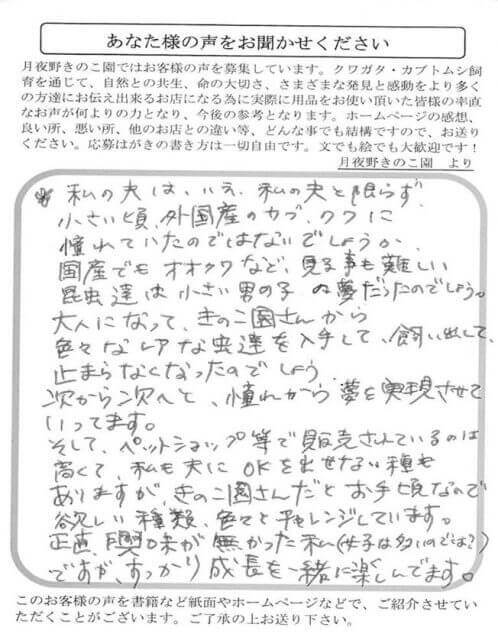 あなた様の声をお聞かせください
月夜野きのこ園ではお客様の声を募集しています。クワガタ・カブトムシ飼
育を通じて、自然との共生、命の大切さ、さまざまな発見と感動をより多く
の方達にお伝え出来るお店になる為に実際に用品をお使い頂いた皆様の率直
なお声が何よりの力となり、今後の参考となります。ホームページの感想、
良い所、悪い所、他のお店との違い等、どんな事でも結構ですので、お送り
ください。応募はがきの書き方は一切自由です。文でも絵でも大歓迎です！
月夜野きのこ園　より
私の夫は、いえ、私の夫と限らず、
小さい頃、外国産のカブ、クワに
憧れていたのではないでしょうか、
国産でもオオクワなど、見る事も難しい
昆虫達は小さい男の子の夢だったのでしょう。
大人になって、きのこ園さんから
色々なレアな虫達を入手して、飼い出して、
止まらなくなったのでしょう
次から次へと、憧れから夢を実現させて
いってます。
そして、ペットショップ等で販売されているのは
高くて、私も夫にOKを出せない種も
ありますが、きのこ園さんだとお手頃なので
欲しい種類、色々とチャレンジしています。
正直、興味が無かった私(女子は多いのでは？)
ですが、すっかり成長を一緒に楽しんでます。
このお客様の声を書籍など紙面やホームページなどで、ご紹介させてい
ただくことがございます。ご了承の上お送り下さい。